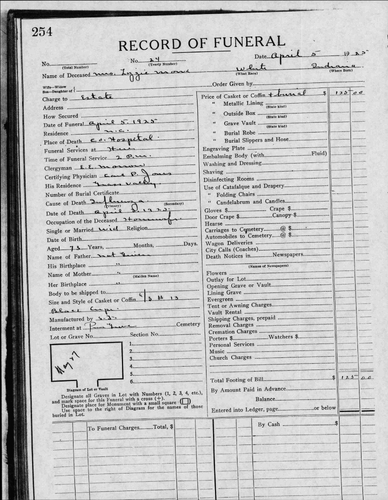 254
RECORD OF FUNERAL
No. No. 24 Date April 5 1925
(Total Number) (Yearly Number)
Name of Deceased Mrs. Lizzie White Indiana
(What Race) (Where Born)
Charge to Estate
Address
How Secured
Date of Funeral April 5 1925
Residence
Place of Death Co. Hospital
Funeral Services at
Time of Funeral Service 2 P.M.
Clergyman
Certifying Physician Jones
His Residence
Number of Burial Certificate
Cause of Death Influenza
Date of Death April 1925
Occupation of the Deceased Housewife
Single or Married Wid Religion
Date of Birth
Aged 73 Years, Months, Days
Name of Father Not Given
His Birthplace "
Name of Mother "
(Maiden Name)
Her Birthplace "
Body to be shipped to
Size and Style of Casket or Coffin
Black Crepe
Manufactured by
Interment at Cemetery
Lot or Grave No. Section No.
1.
2.
3.
4.
5.
6.
Diagram of Lot or Vault
Designate all Graves in Lot with Numbers (1, 2, 3, 4, etc.),
and mark space for this Funeral with a cross (+).
Designate place for Monument with a small square
Use space to the right of Diagram for the names of those
buried in Lot.
Order Given by
Price of Casket or Coffin & burial 125 00
" Metallic Lining
(State Kind)
" Outside Box
(State Kind)
" Grave Vault
(State Kind)
" Burial Robe
(State Kind)
" Burial Slippers and Hose
Engraving Plate
Embalming Body (with Fluid)
Washing and Dressing
Shaving
Disinfecting Rooms
Use of Catafalque and Drapery
" Folding Chairs
" Candelabrum and Candles
Gloves $ Crape $
Door Crape $ Canopy $
Hearse
Carriages to Cemetery @ $
Automobiles to Cemetery @ $
Wagon Deliveries
City Calls (Coach)
Death Notices in Newspapers
(Names of Newspapers)
Flowers
Outlay for Lot
Opening Grave or Vault
Lining Grave
Evergreen
Tent or Awning Charges
Vault Rental
Shipping Charges, prepaid
Removal Charges
Cremation Charges
Porters $ Watchers $
Personal Services
Music
Church Charges
Total Footing of Bill 125 00
By Amount Paid in Advance
Balance
Entered into Ledger, page or below
To Funeral Charges, Total
By Cash $